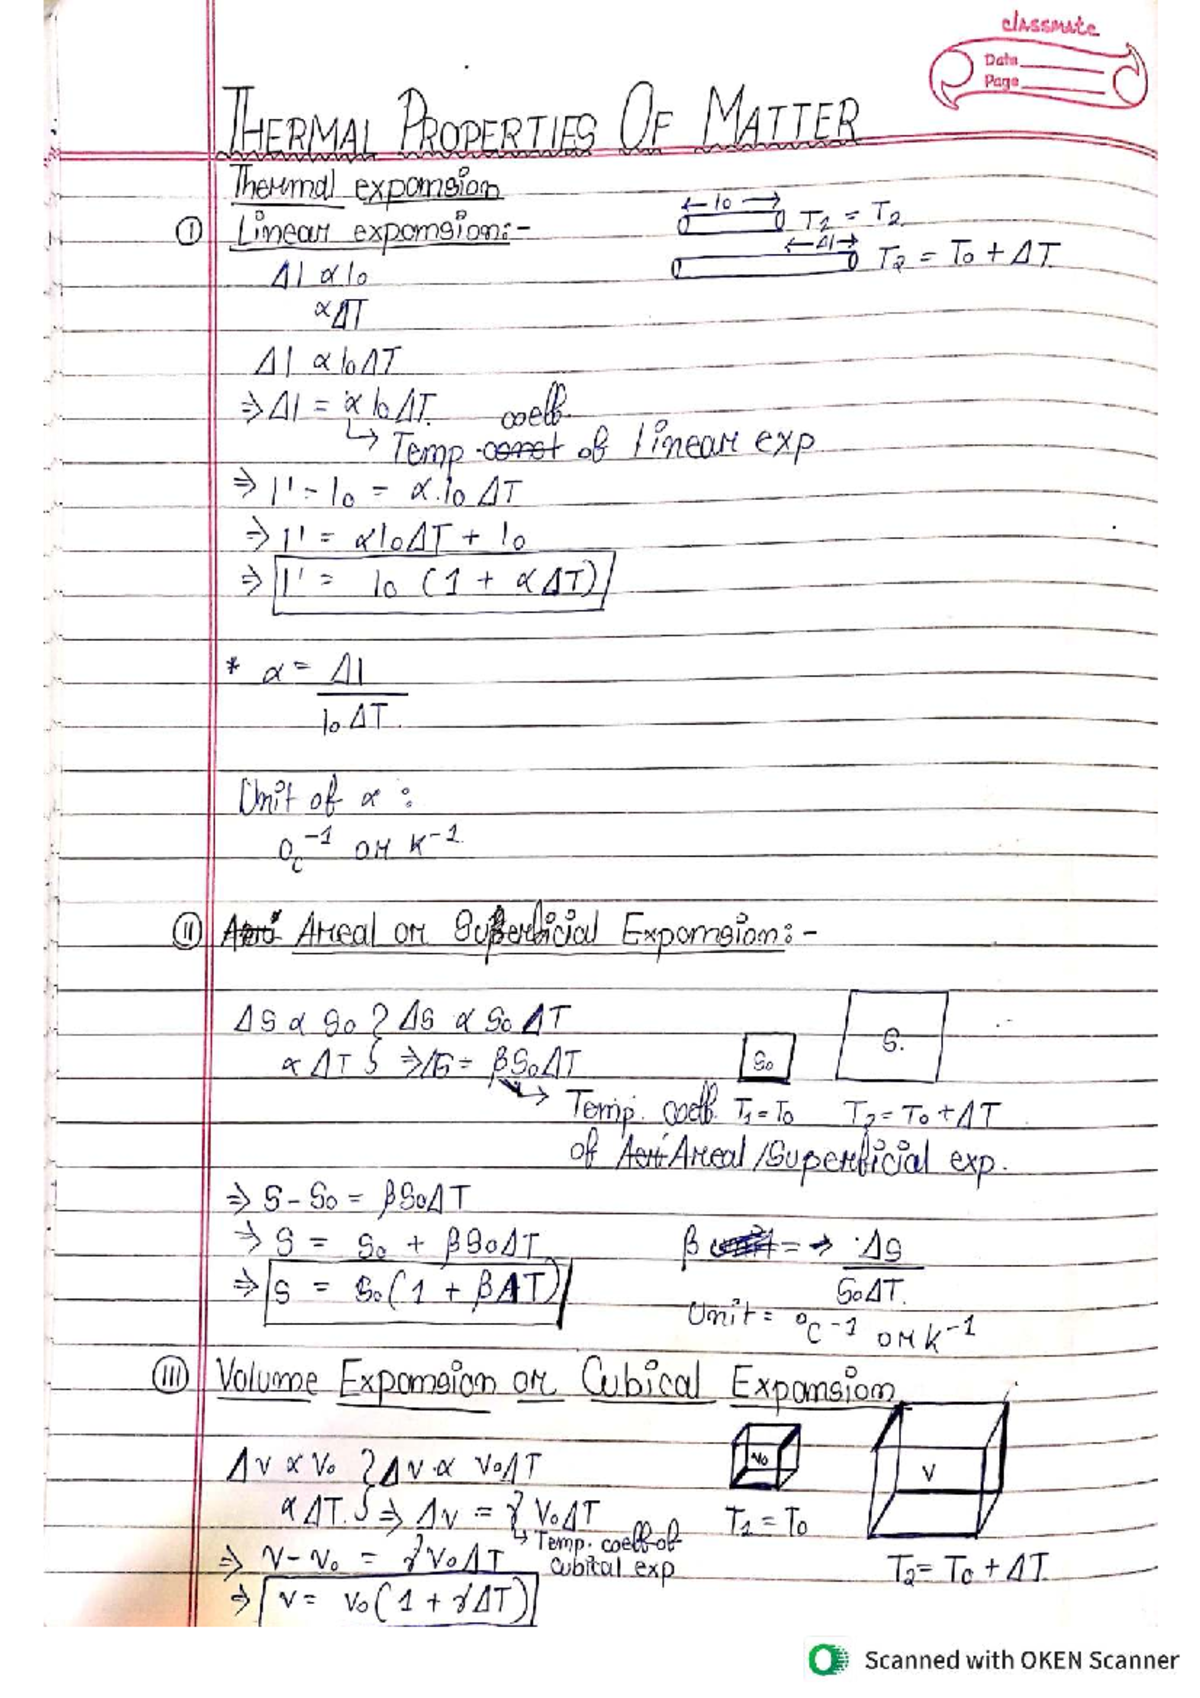 classmate
Date
Page
THERMAL PROPERTIES OF MATTER
Thermal expansion
① Linear expansion:-
← l0 →
T2 = T2
←Δl→
T2 = T0 + ΔT
Δl α l0
α ΔT
Δl α l0ΔT
⇒ Δl = α l0 ΔT. coeff.
↳ Temp. const of linear exp
⇒ l' - l0 = α.l0 ΔT
⇒ l' = αl0ΔT + l0
⇒ l' = l0 (1 + αΔT)
* α = Δl
l0 ΔT.
Unit of α :
°C⁻¹ or K⁻¹
⑪ Areal or Superficial Expansion:-
ΔS α S0 } ΔS α S0 ΔT
α ΔT } ⇒ ΔS = βS0ΔT
S0
S.
↳ Temp. coeff. T1 = T0 T2 = T0 + ΔT
of Areal/Superficial exp.
⇒ S - S0 = βS0ΔT
⇒ S = S0 + βS0ΔT
⇒ S = S0(1 + βΔT)
β = → ΔS
S0ΔT.
Unit = °C⁻¹ or K⁻¹
⑪I Volume Expansion or Cubical Expansion
ΔV α V0 } ΔV α V0ΔT
α ΔT. } ⇒ ΔV = γ V0ΔT
V0
V
↳ Temp. coeff of
cubical exp
T1 = T0
T2 = T0 + ΔT.
⇒ V - V0 = γV0ΔT
⇒ V = V0(1 + γΔT)
Scanned with OKEN Scanner